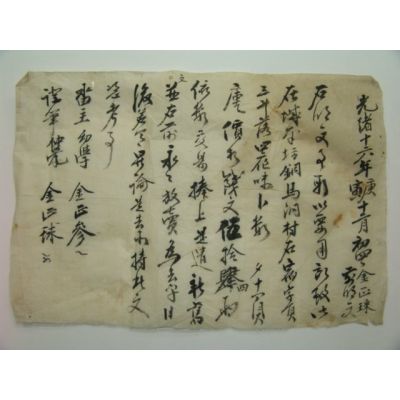 光緖十六年庚寅十二月初金正珠
前明文
右明文事段以要用所致
在城坊銅馬洞村石宿字員
三斗落味卜數十負
庫價折錢文伍拾肆四兩
依數交易捧上是遣新舊文
並右前永永放賣爲去乎日
後若有是論是去等持此文
憑考事
畓主幼學 金正參
證筆仲兄 金正珠